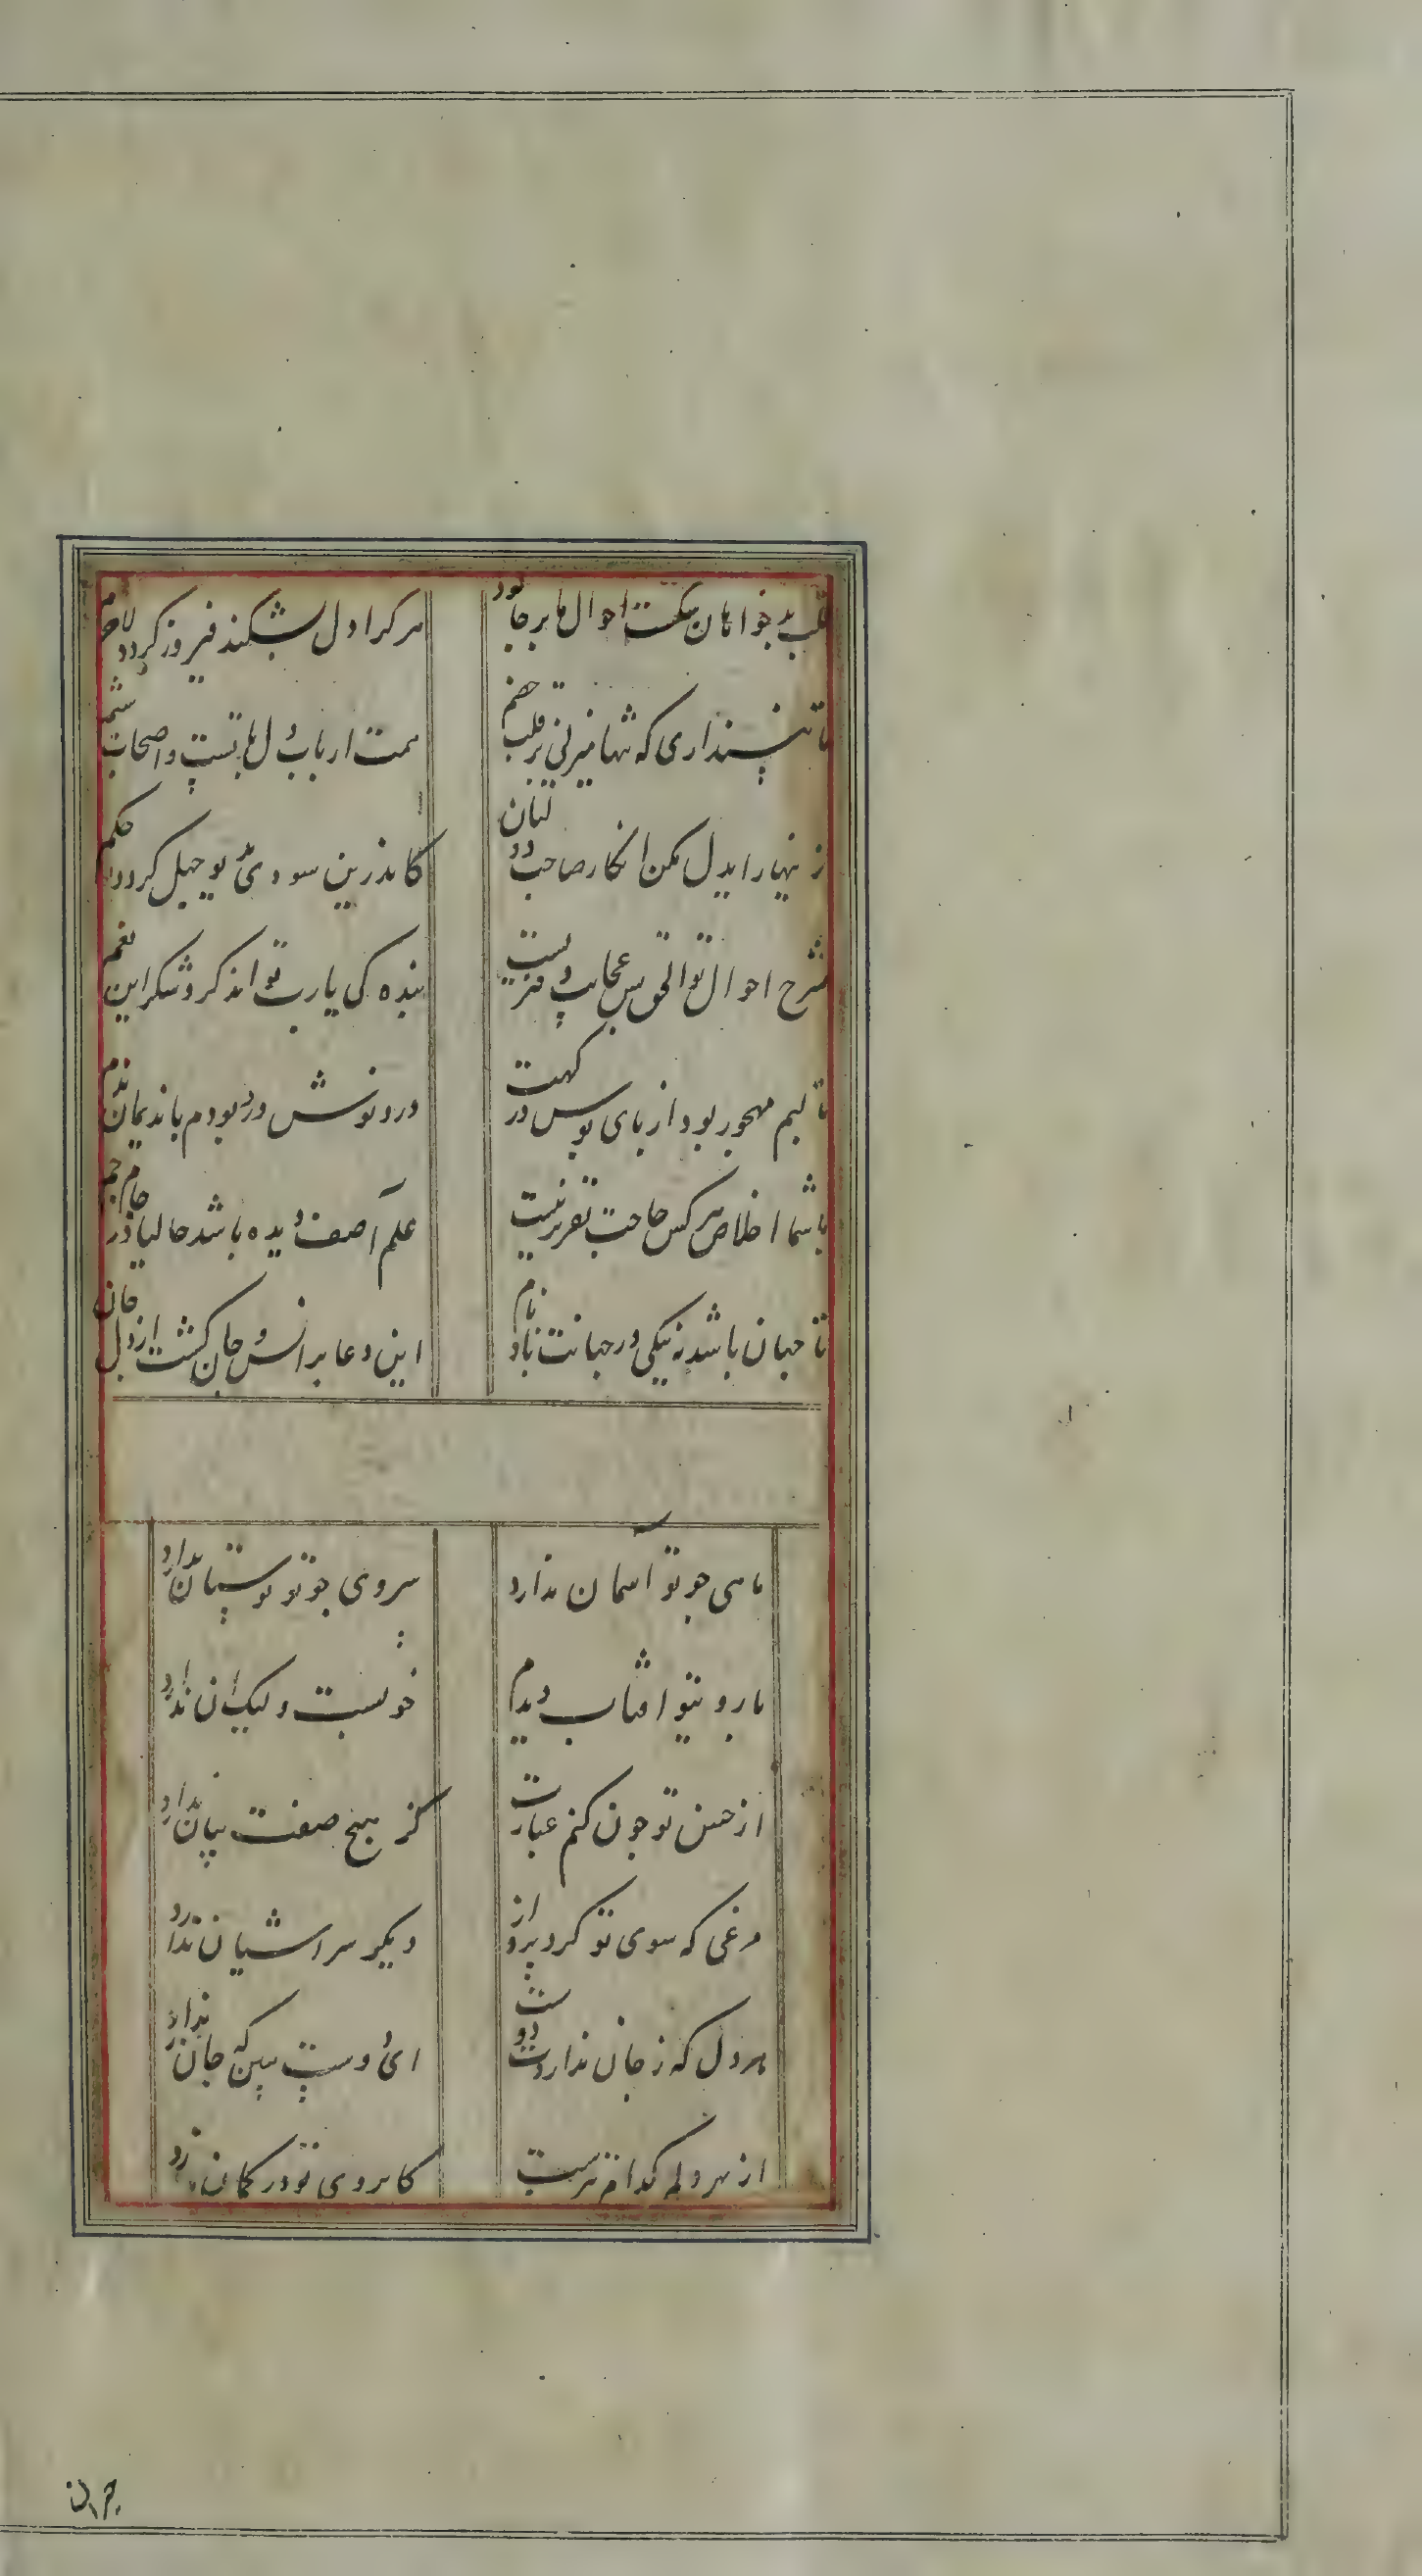 قلب بدخواهان شکست احوال ما بر جا بود
هر کرا دل بشکند فیروز کردد لاجرم
تا نپنداری که تنها میزنی بر قلب خصم
همت ارباب دلها تست و اصحاب شمم
زینهار ایدل مکن انکار صاحب دولتان
کاندرین سودی بو جهل کردد بو حکم
شرح احوال تو الحق بس عجایب دفتریست
بنده کی یارب تواند کرد شکر این نعم
تا لبم مهجور بود از پای بوس درکهت
درد نوش درد بودم با ندیمان ندم
با شما اخلاص هر کس حاجت تقریر نیست
علم آصف دیده باشد حالیا در جام جم
تا جهان باشد به نیکی در جهانت باد نام
این دعا بر انس و جان کشت از دل و جان
ماهی جو تو آسمان ندارد
سروی جو تو بوستان ندارد
با روی تو افتاب دیدم
خوبست ولیک ان ندارد
از حسن تو جون کنم عبارت
کز هیج صفت بیان ندارد
مرغی که سوی تو کرد پرواز
دیکر سر اشیان ندارد
هر دل که ز جان نداردت دوست
ای دوست ببین که جان ندارد
از هر دلم کدام تیرست
کابروی تو در کمان ندارد